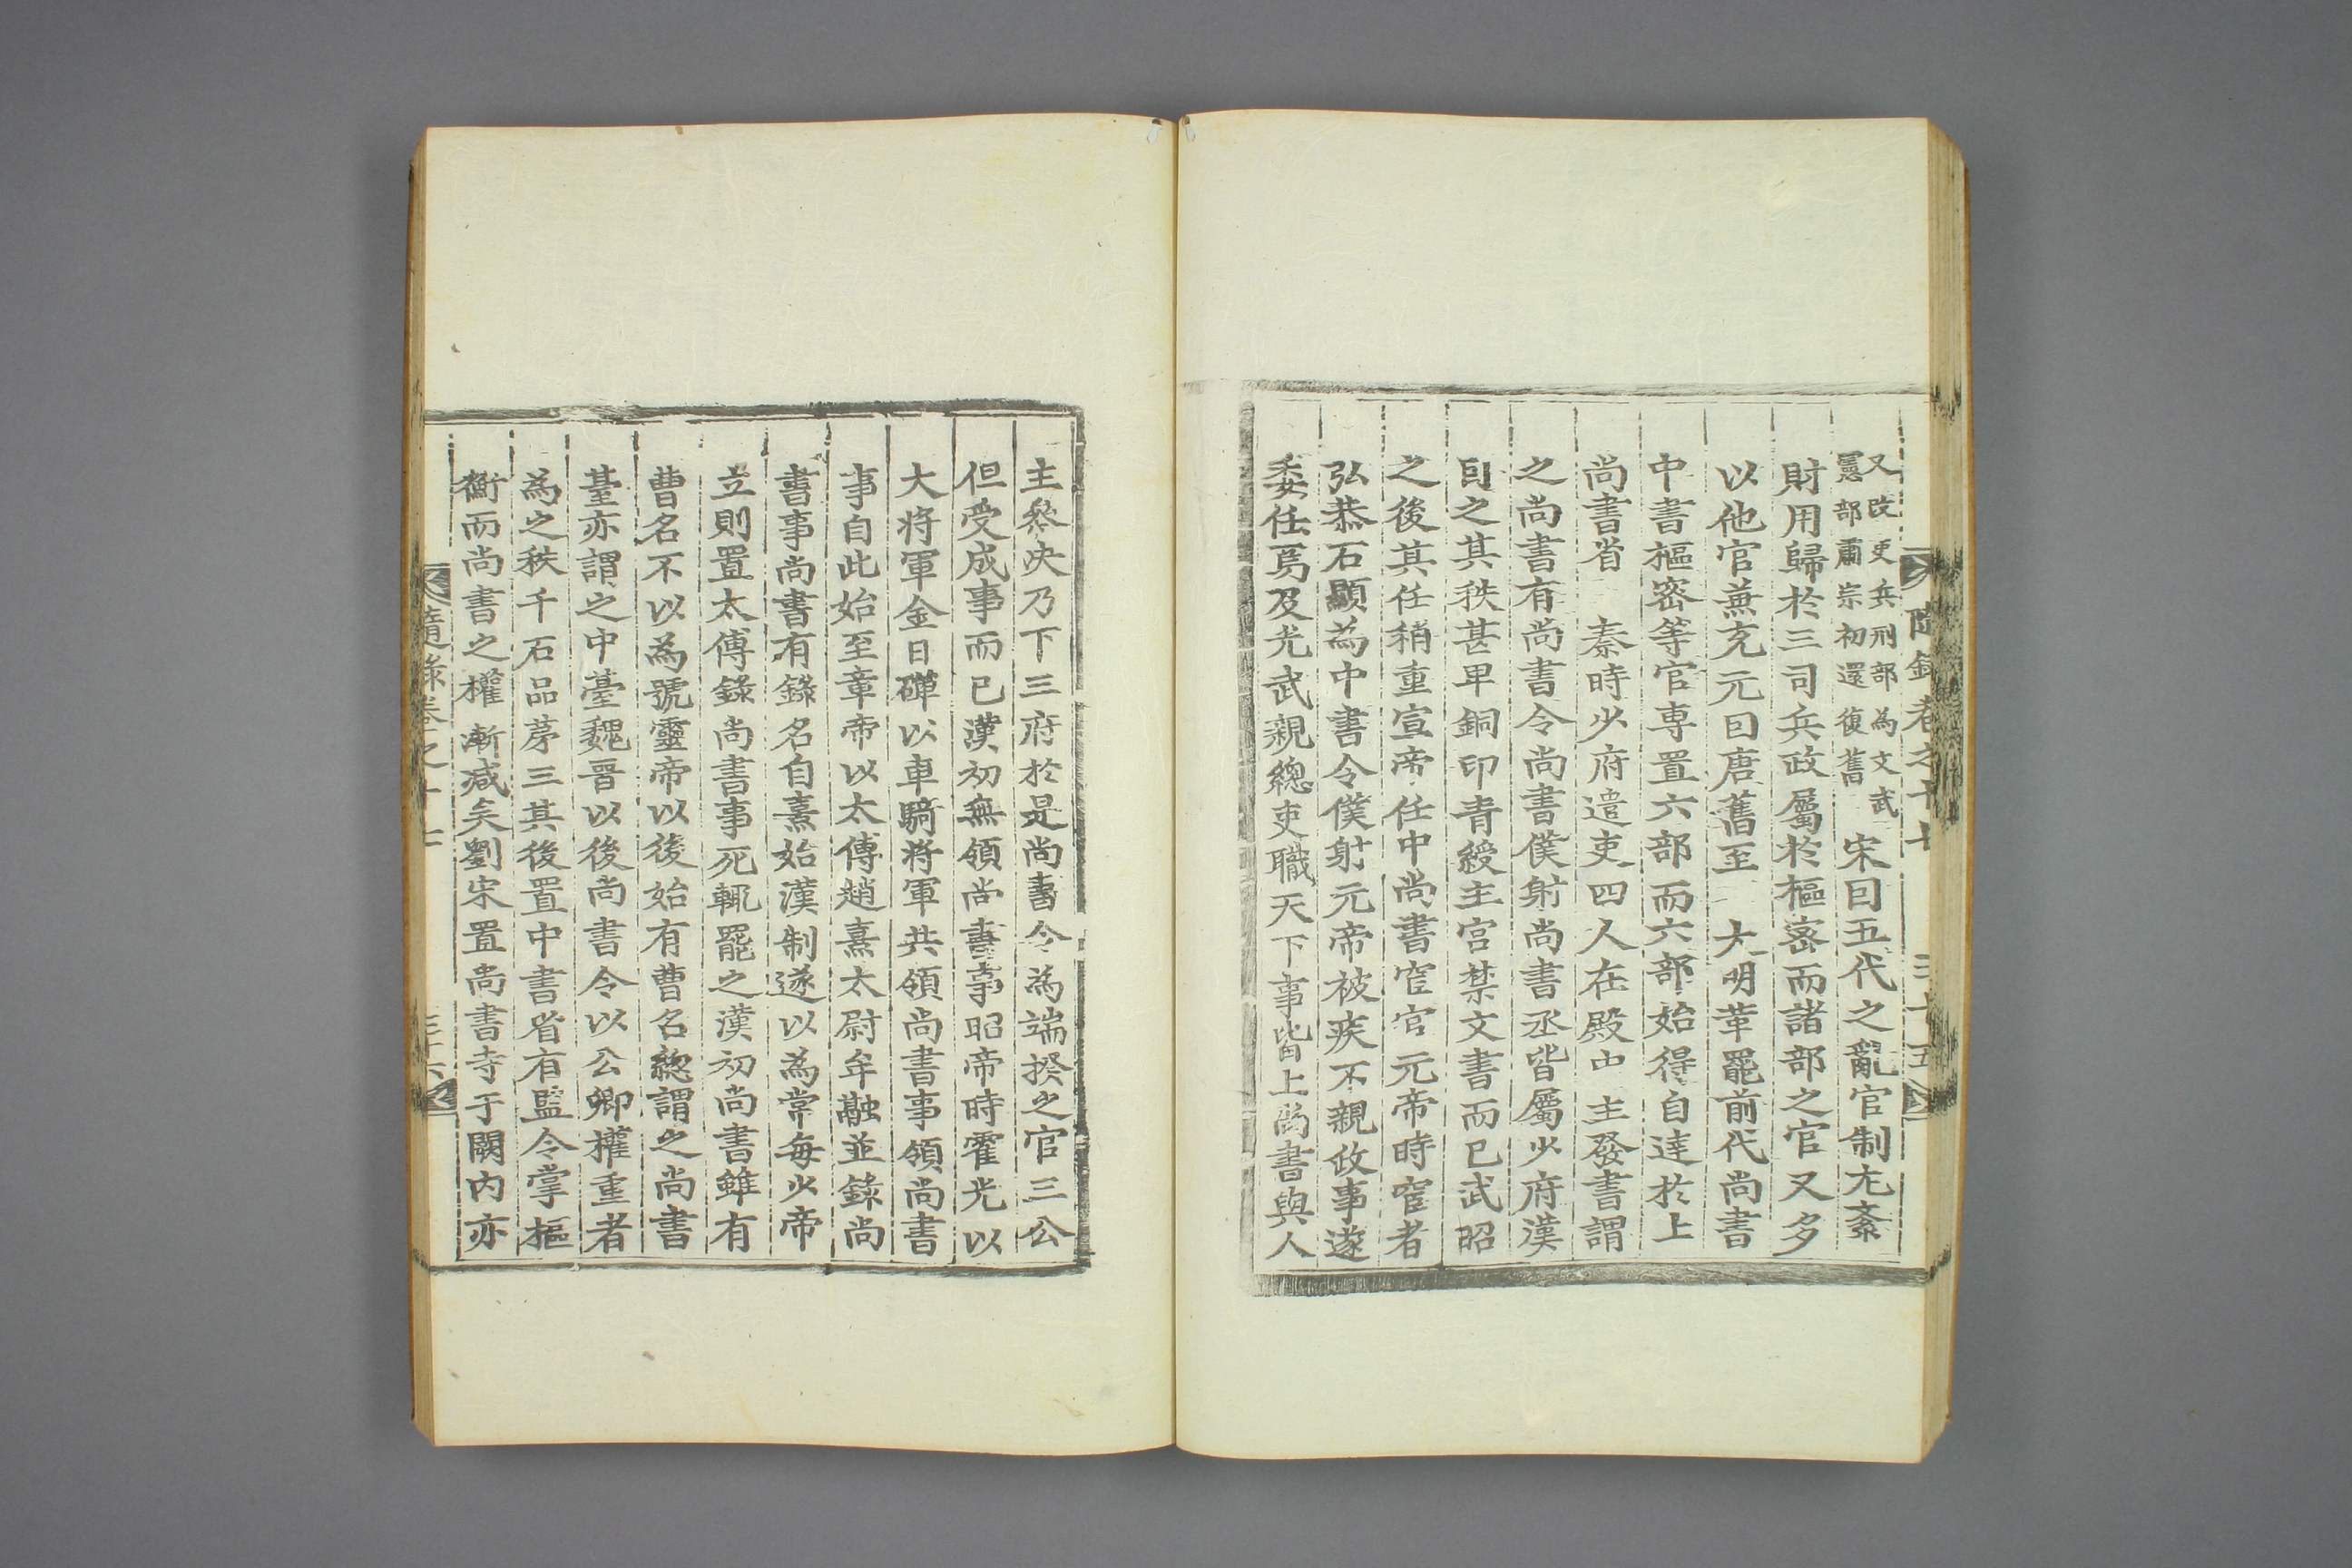 隨錄卷之十七 三十五
又改吏兵刑部為文武
憲部肅宗初還復舊
宋因五代之亂官制尤紊
財用歸於三司兵政屬於樞密而諸部之官又多
以他官兼充元因唐舊至 大明革罷前代尚書
中書樞密等官專置六部而六部始得自達於上
尚書省 秦時少府遣吏四人在殿中 主發書謂
之尚書有尚書令尚書僕射尚書丞皆屬少府漢
因之其秩甚卑銅印青綬主宮禁文書而已武昭
之後其任稍重宣帝任中尚書宦官元帝時宦者
弘恭石顯為中書令僕射元帝被疾不親政事遂
委任焉及光武親總吏職天下事皆上尚書與人
主參决乃下三府於是尚書令為端揆之官三公
但受成事而已漢初無領尚書事昭帝時霍光以
大將軍金日磾以車騎將軍共領尚書事領尚書
事自此始至章帝以太傅趙熹太尉牟融並錄尚
書事尚書有錄名自熹始漢制遂以為常每少帝
立則置太傅錄尚書事死輒罷之漢初尚書雖有
曹名不以為號靈帝以後始有曹名總謂之尚書
臺亦謂之中臺魏晋以後尚書令以公卿權重者
為之秩千石品苐三其後置中書省有監令掌樞
衡而尚書之權漸减矣劉宋置尚書寺于闕內亦
隨錄卷之十七 三十六